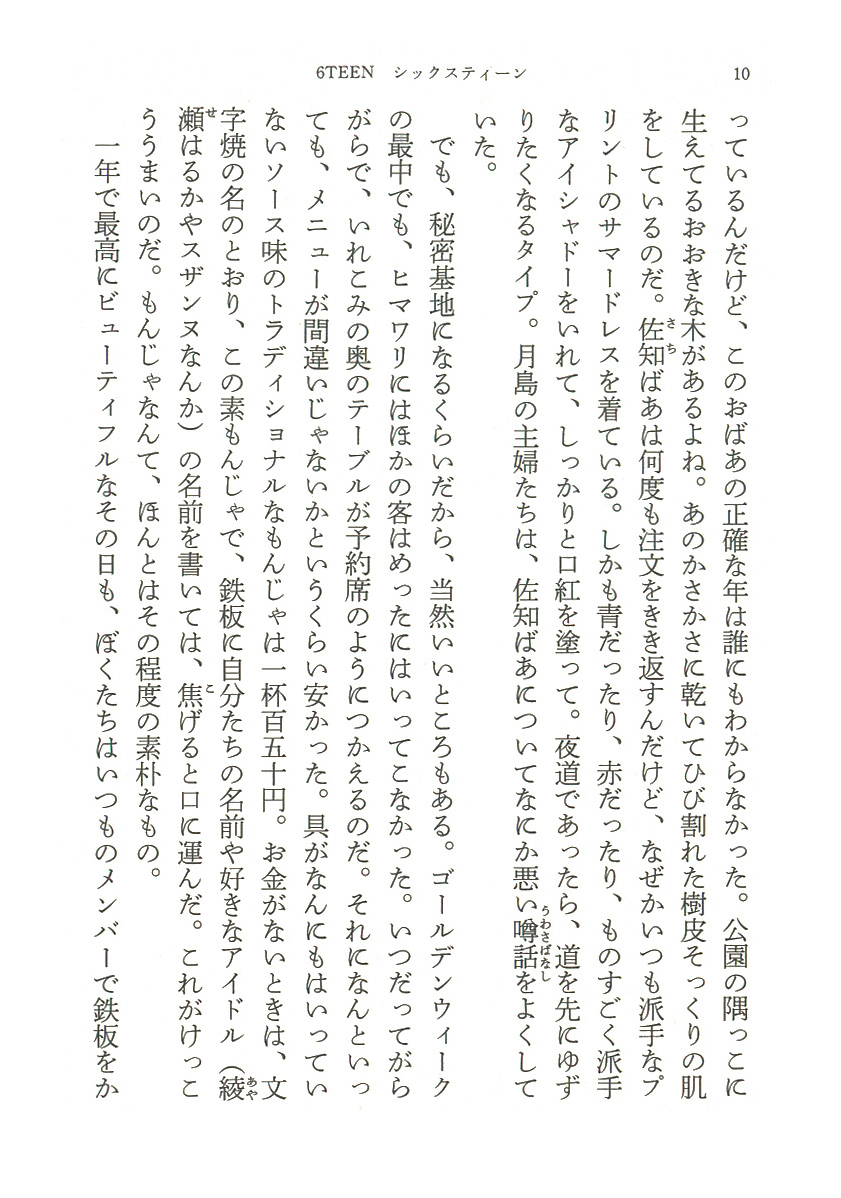 6TEEN シックスティーン
10
っているんだけど、このおばあの正確な年は誰にもわからなかった。公園の隅っこに
生えてるおおきな木があるよね。あのかさかさに乾いてひび割れた樹皮そっくりの肌
をしているのだ。佐知ばあは何度も注文をきき返すんだけど、なぜかいつも派手なプ
リントのサマードレスを着ている。しかも青だったり、赤だったり、ものすごく派手
なアイシャドーをいれて、しっかりと口紅を塗って。夜道であったら、道を先にゆず
りたくなるタイプ。月島の主婦たちは、佐知ばあについてなにか悪い噂話をよくして
いた。
でも、秘密基地になるくらいだから、当然いいところもある。ゴールデンウィーク
の最中でも、ヒマワリにはほかの客はめったにはいってこなかった。いつだってがら
がらで、いれこみの奥のテーブルが予約席のようにつかえるのだ。それになんといっ
ても、メニューが間違いじゃないかというくらい安かった。具がなんにもはいってい
ないソース味のトラディショナルなもんじゃは一杯百五十円。お金がないときは、文
字焼の名のとおり、この素もんじゃで、鉄板に自分たちの名前や好きなアイドル（綾
瀬はるかやスザンヌなんか）の名前を書いては、焦げると口に運んだ。これがけっこ
ううまいのだ。もんじゃなんて、ほんとはその程度の素朴なもの。
一年で最高にビューティフルなその日も、ぼくたちはいつものメンバーで鉄板をか
さち
うわさばなし
あや
せ
こ